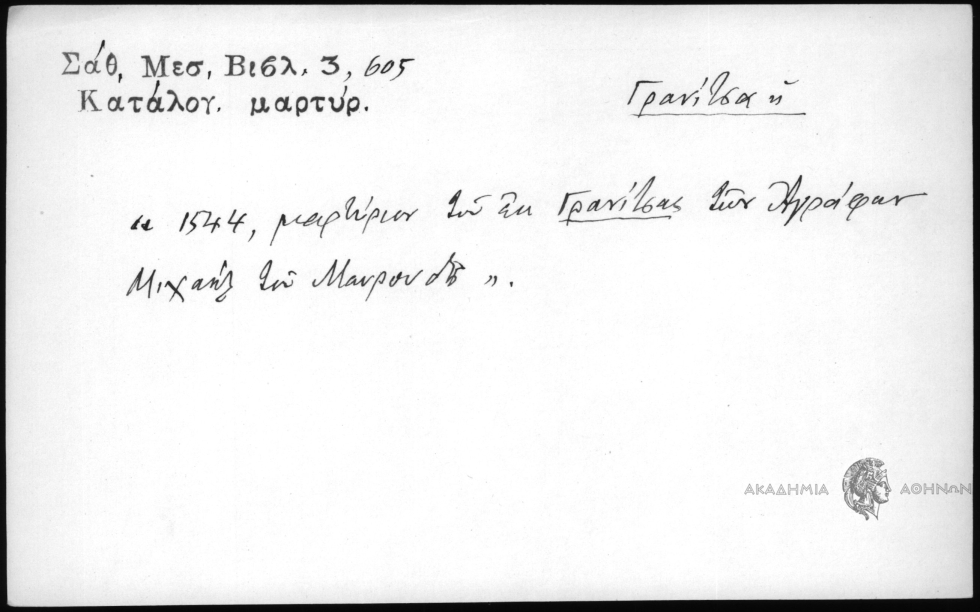 Σάθ. Μεσ. Βιβλ. 3, 605
Κατάλογ. μαρτύρ.
Γρανίτσα ἡ
« 1544, μαρτύριον τοῦ ἐκ Γρανίτσας τῶν Ἀγράφων
Μιχαὴλ τοῦ Μαυρουδῆ ».
ΑΚΑΔΗΜΙΑ ΑΘΗΝΩΝ